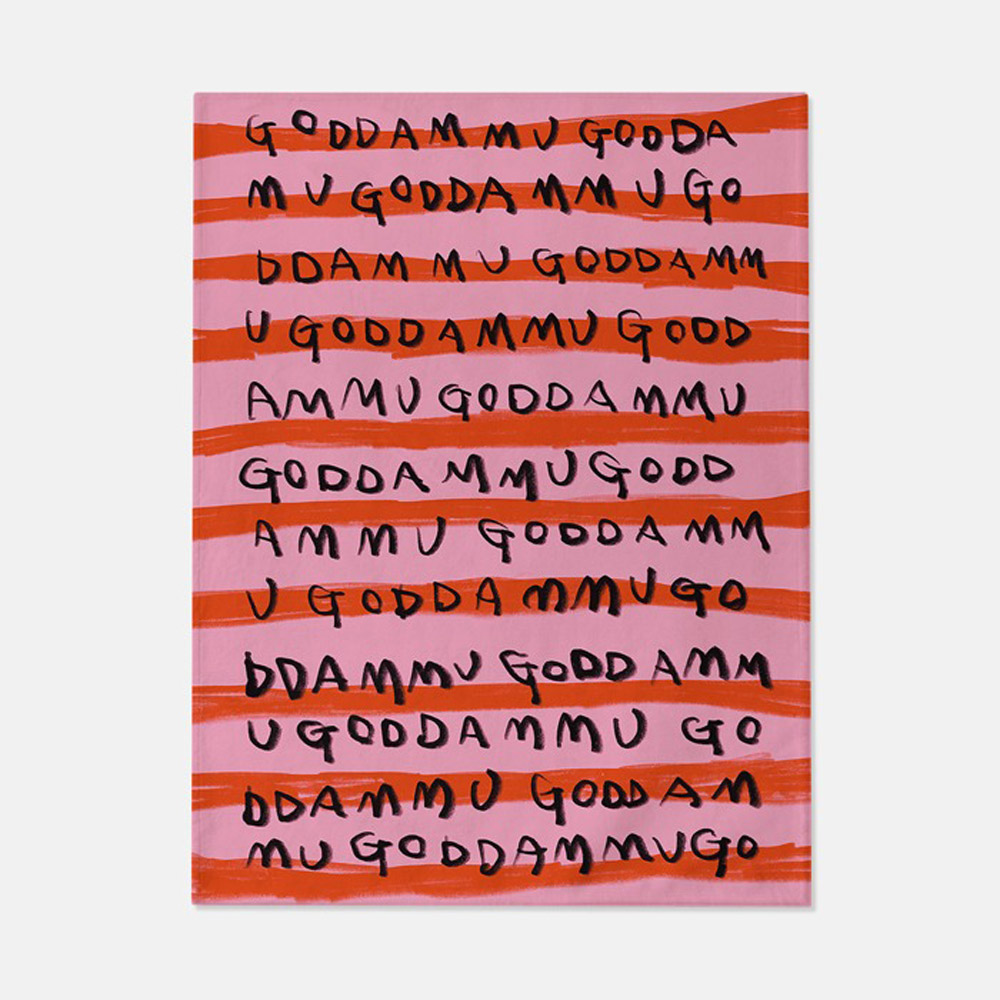 GODDAMMUGODDA
MUGODDAMMUGO
DDAMMUGODDAMM
UGODDAMMUGODD
AMMUGODDAMMU
GODDAMMUGODD
AMMUGODDAMM
UGODDAMMUGO
DDAMMUGODDAMM
UGODDAMMUGO
DDAMMUGODDAM
MUGODDAMMUGO